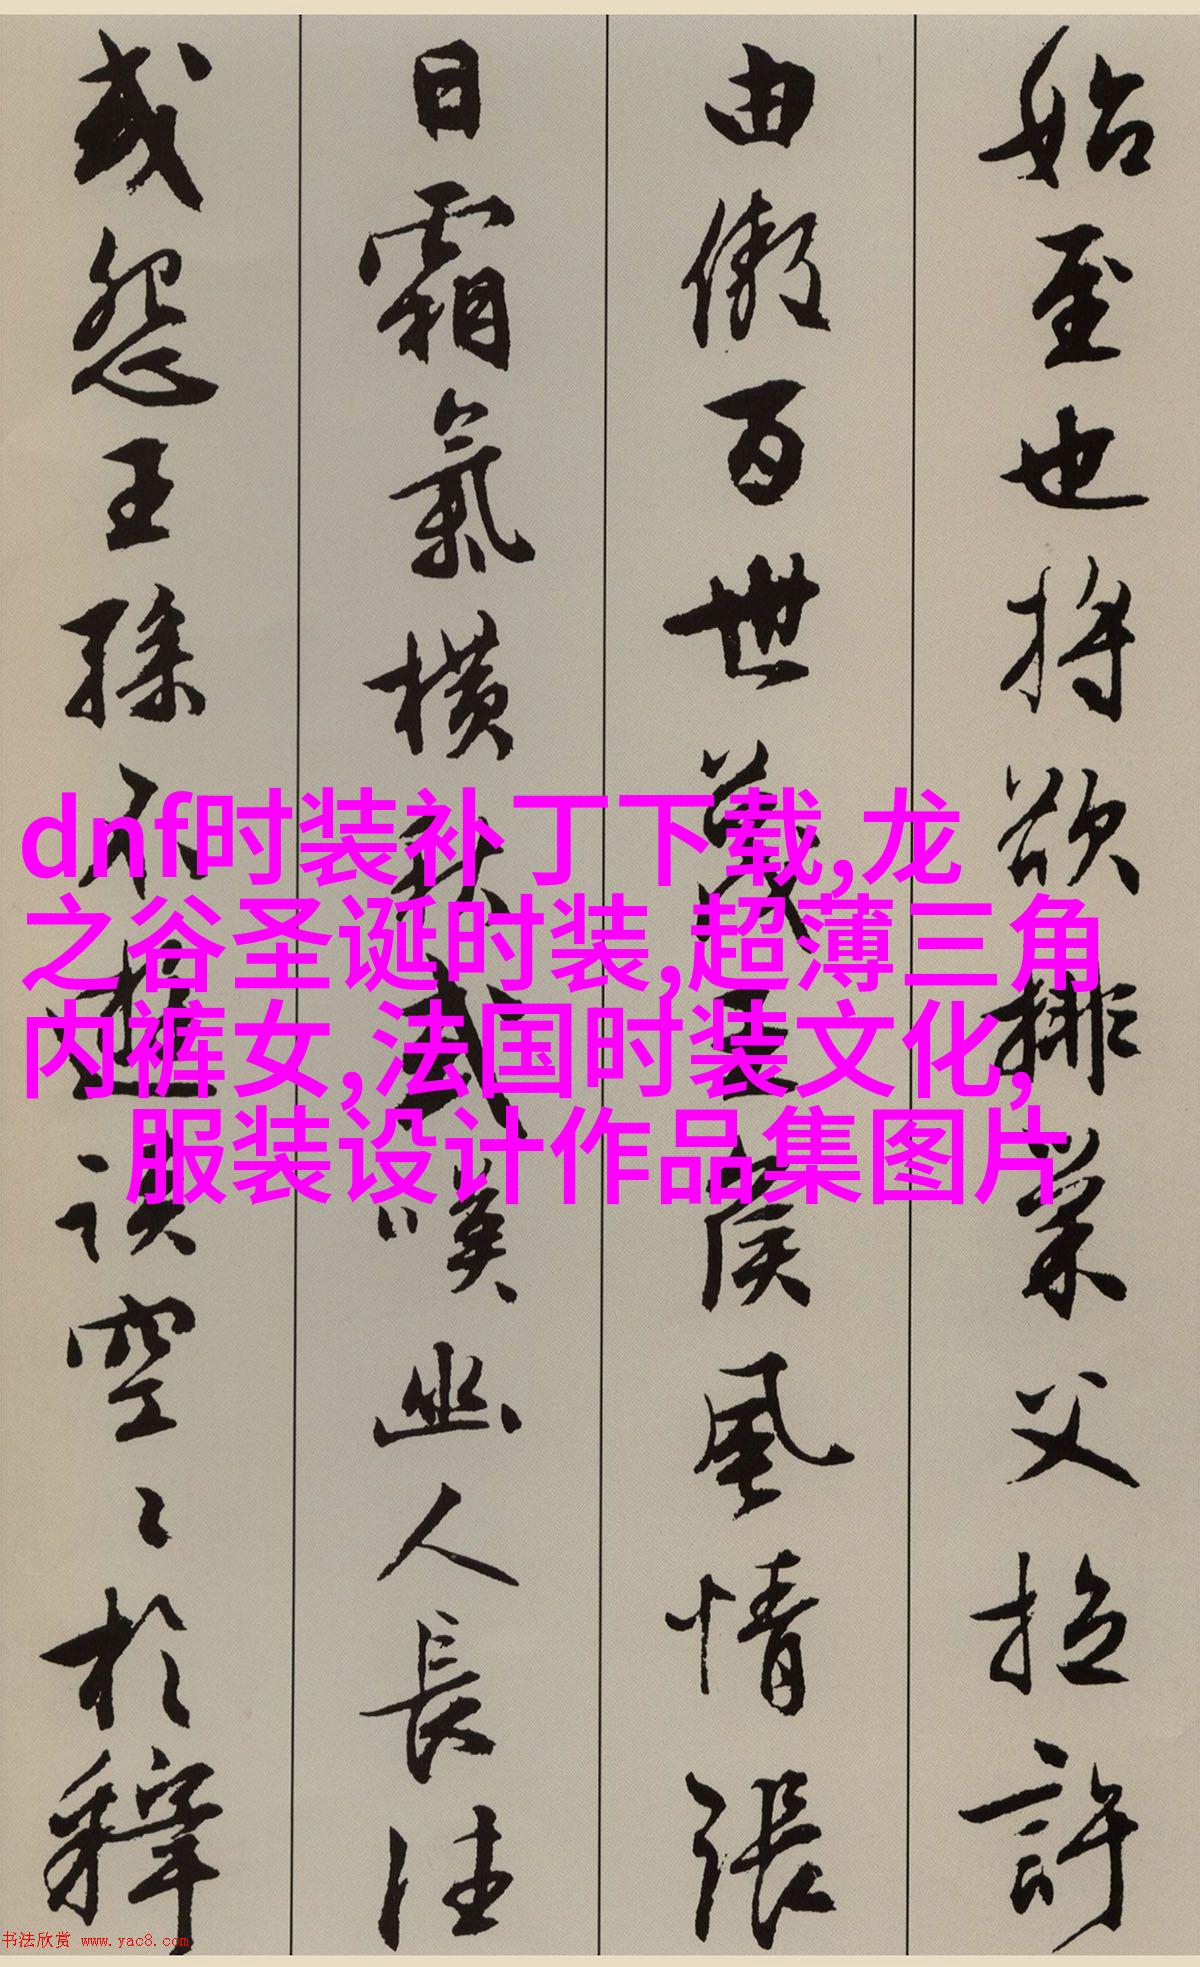 始至也將欲排巢父拉許
由傲百世蔑王侯風情張
日霜氣橫秋或嘆幽人長往
或怨王孫不遊談空〻於釋
dnf时装补丁下载,龙
之谷圣诞时装,超薄三角
内裤女,法国时装文化,
服装设计作品集图片
书法欣赏 www.yac8.com